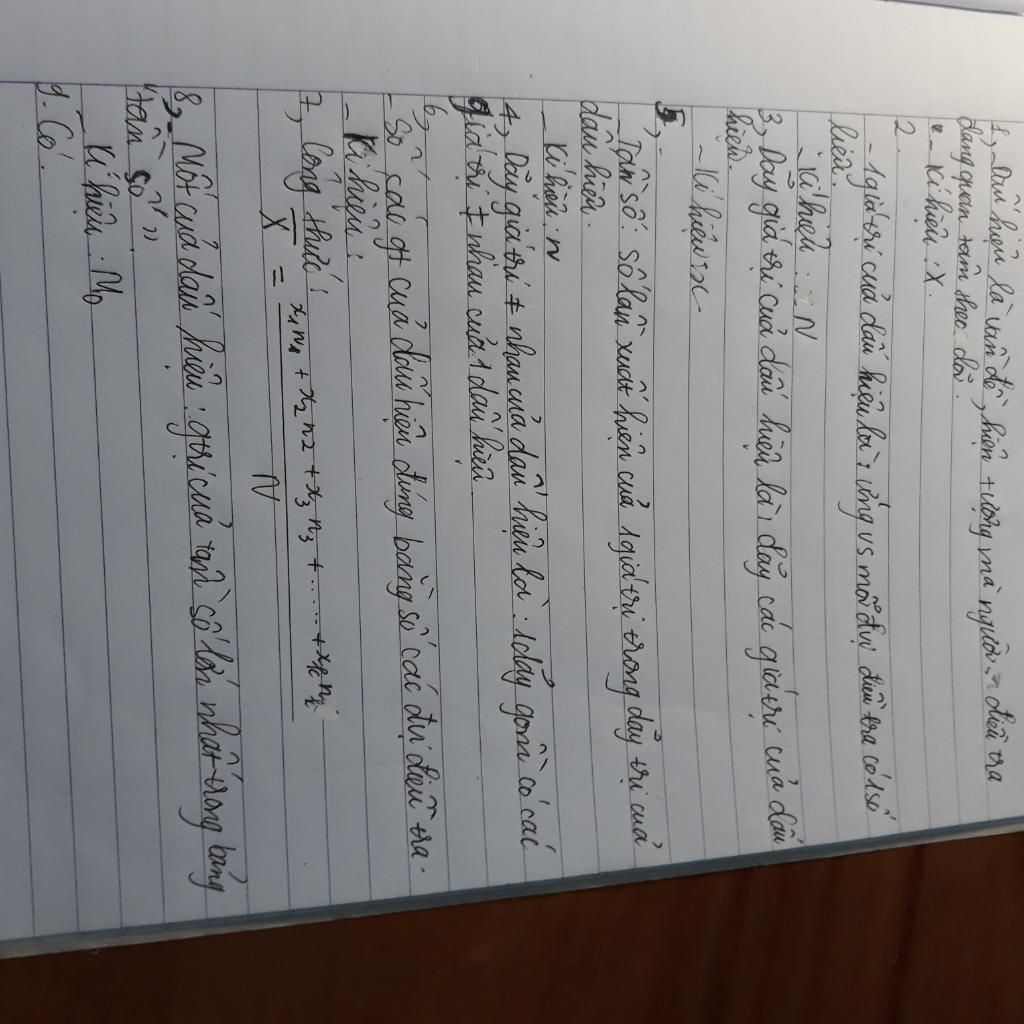 1, - Dấu hiệu là vấn đề, hiện tượng mà người điều tra
đang quan tâm theo dõi.
- Kí hiệu: X.
2.
- 1 giá trị của dấu hiệu là, ứng vs mỗi đvị điều tra có 1 số
liệu.
- Kí hiệu: N
3, Dãy giá trị của dấu hiệu là, dãy các giá trị của dấu
hiệu.
- Kí hiệu: x
5, -
- Tần số: Số lần xuất hiện của 1 giá trị trong dãy trị của
dấu hiệu.
- Kí hiệu: n
4, Dãy giá trị ≠ nhau của dấu hiệu là: 1 dãy gồm có các
giá trị ≠ nhau của 1 dấu hiệu.
6,
- Số các gt của dấu hiệu đúng bằng số các đvị điều tra.
- Kí hiệu:
7, Công thức:
X̄ = (x₁n₁ + x₂n₂ + x₃n₃ + ...... + xₖnₖ) / N
8, - Mốt của dấu hiệu: gtrị của số lớn nhất trong bảng
"tần số"
- Kí hiệu: M₀
9. Có.